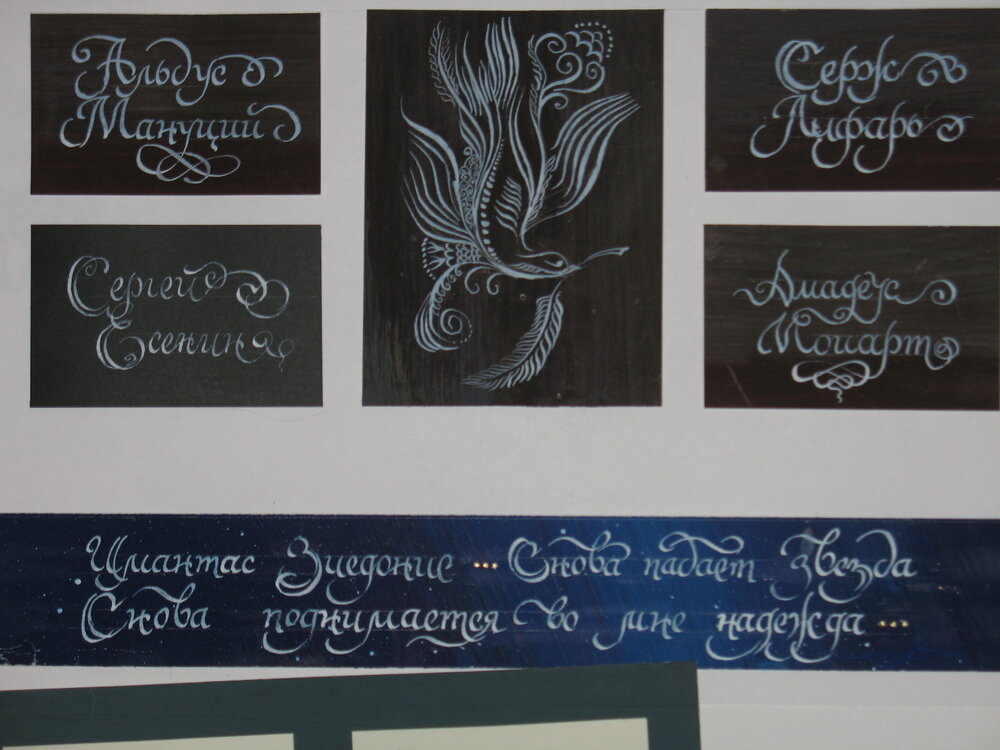 Альдус
Мануций
Серж
Лифарь
Сергей
Есенин
Амадеус
Моцарт
Имантас Зиедонис ... Снова падает Звезда
Снова поднимается во мне надежда ...